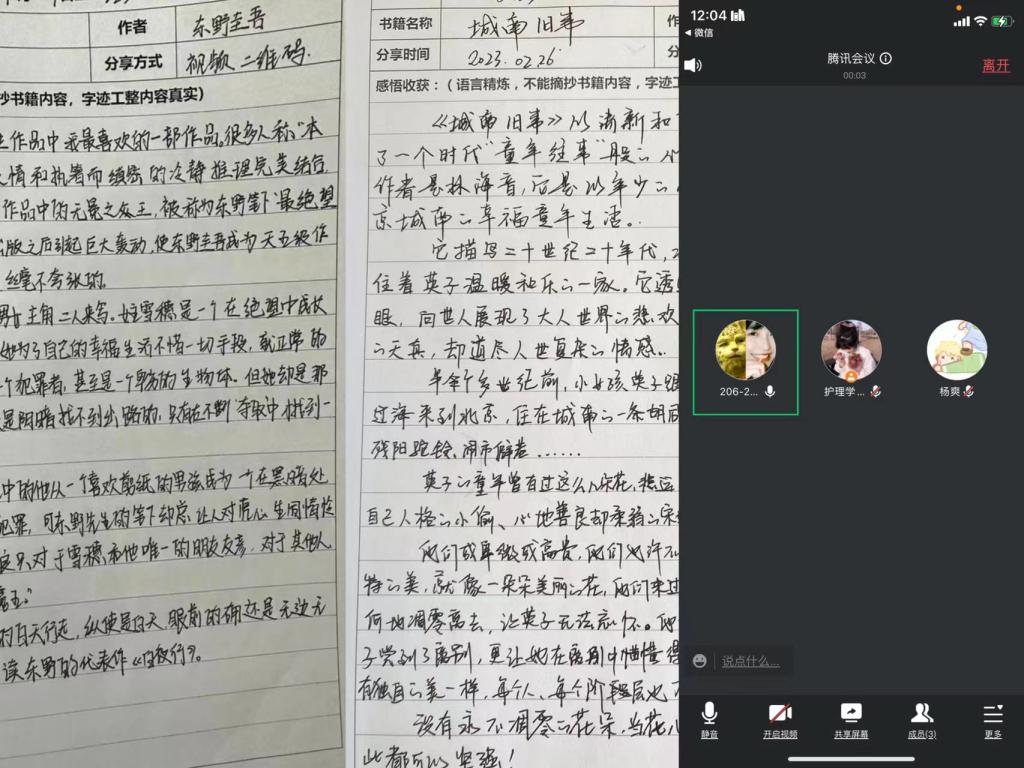 作者
东野圭吾
分享方式
视频 二维码.
抄书籍内容,字迹工整内容真实)
作品中我最喜欢的一部作品。很多人称“本
情和执着而缜密的冷静推理完美结合
作品中的无冕之王,被称为东野笔下最绝望
出版之后引起巨大轰动,使东野圭吾成为天王级作
丝毫不夸张的.
主角二人来写.女主雪穗是一个在绝望中成长
她为了自己的幸福生活不惜一切手段,就正常的
个犯罪者,甚至是一个卑劣的生物体.但她却是那
是阴暗找不到出路的,只有在不断夺取中找到一
中的他从一个喜欢剪纸的男孩成为一个在黑暗处
犯罪,可东野先生的笔下却总让人对虎心生同情
只对于雪穗和他唯一的朋友友彦,对于其他人
的白天行走,纵使是白天,眼前的确还是无边无
读东野的代表作《白夜行》。
书籍名称
城南旧事
分享时间
2023.02.26
感悟收获:(语言精炼,不能摘抄书籍内容,字迹工
《城南旧事》以清新和
了一个时代“童年往事”般的
作者是林海音,后是以年少的
京城南的幸福童年生活。
它描写二十世纪二十年代,
住着英子温暖和乐的一家。它透
眼,向世人展现了大人世界的悲欢
的天真,却道尽人世复杂的情感.
半个多世纪前,小女孩英子跟
过海来到北京,住在城南的一条胡同
残阳驼铃、闹市僻巷......
英子的童年曾有过这么
自己人格的小偷、心地善良却柔弱的宋
他们或卑微或高贵,他们也许不
特的美,就像一朵朵美丽的花,他们来过
何地凋零离去,让英子无法忘怀。
子尝到了离别,更让她在离别中懵懂得
有独自的美一样,每个人、每个阶段层也
没有永不凋零的花朵,当花儿
此都可以坚强!
12:04
微信
腾讯会议
00:03
离开
206-2...
护理学...
杨爽
说点什么...
静音
开启视频
共享屏幕
成员(3)
更多